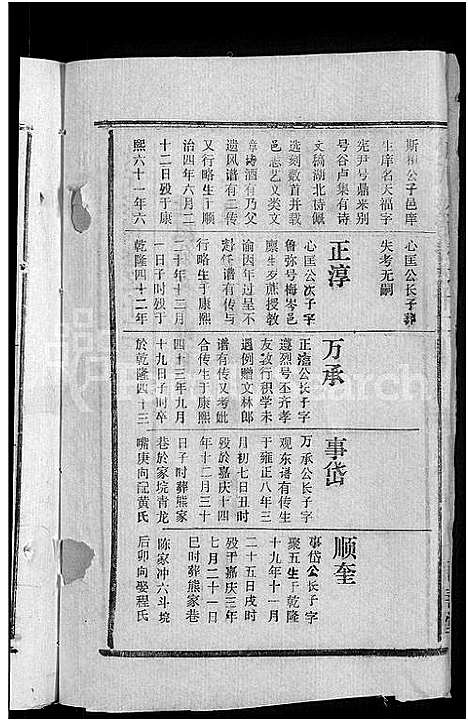 斯植公子邑庠
生庠名天福字
宪尹号鼎来别
号谷卢集有诗
文稿湖北诗佩
选刻数首并载
邑志艺文类文
章诗酒有乃父
遗风谱有二传
又行略生于顺
治四年六月二
十二日殁于康
熙六十一年六
心匡公长子葬
失考无嗣
正淳
心匡公次子字
鲁弥号梅岑邑
廪生岁荒授教
谕因年过呈不
赴任谱有传与
行略生于康熙
二十年十二月
一日子时殁于
乾隆四十二年
万承
正淳公长子字
遵烈号丕齐孝
友敦行积学未
遇例赠文林郎
谱有传又考妣
合传生于康熙
四十三年九月
十九日子时卒
於乾隆四十三
事岱
万承公长子字
观东谱有传生
于雍正八年三
月初七日丑时
殁於嘉庆十四
年十二月三十
日子时葬熊家
巷於家垸青龙
嘴庚向配黄氏
顺奎
事岱公长子字
聚五生于乾隆
十九年十一月
二十五日戌时
殁于嘉庆三年
七月二十一日
巳时葬熊家巷
陈家冲六斗垸
后卯向娶程氏